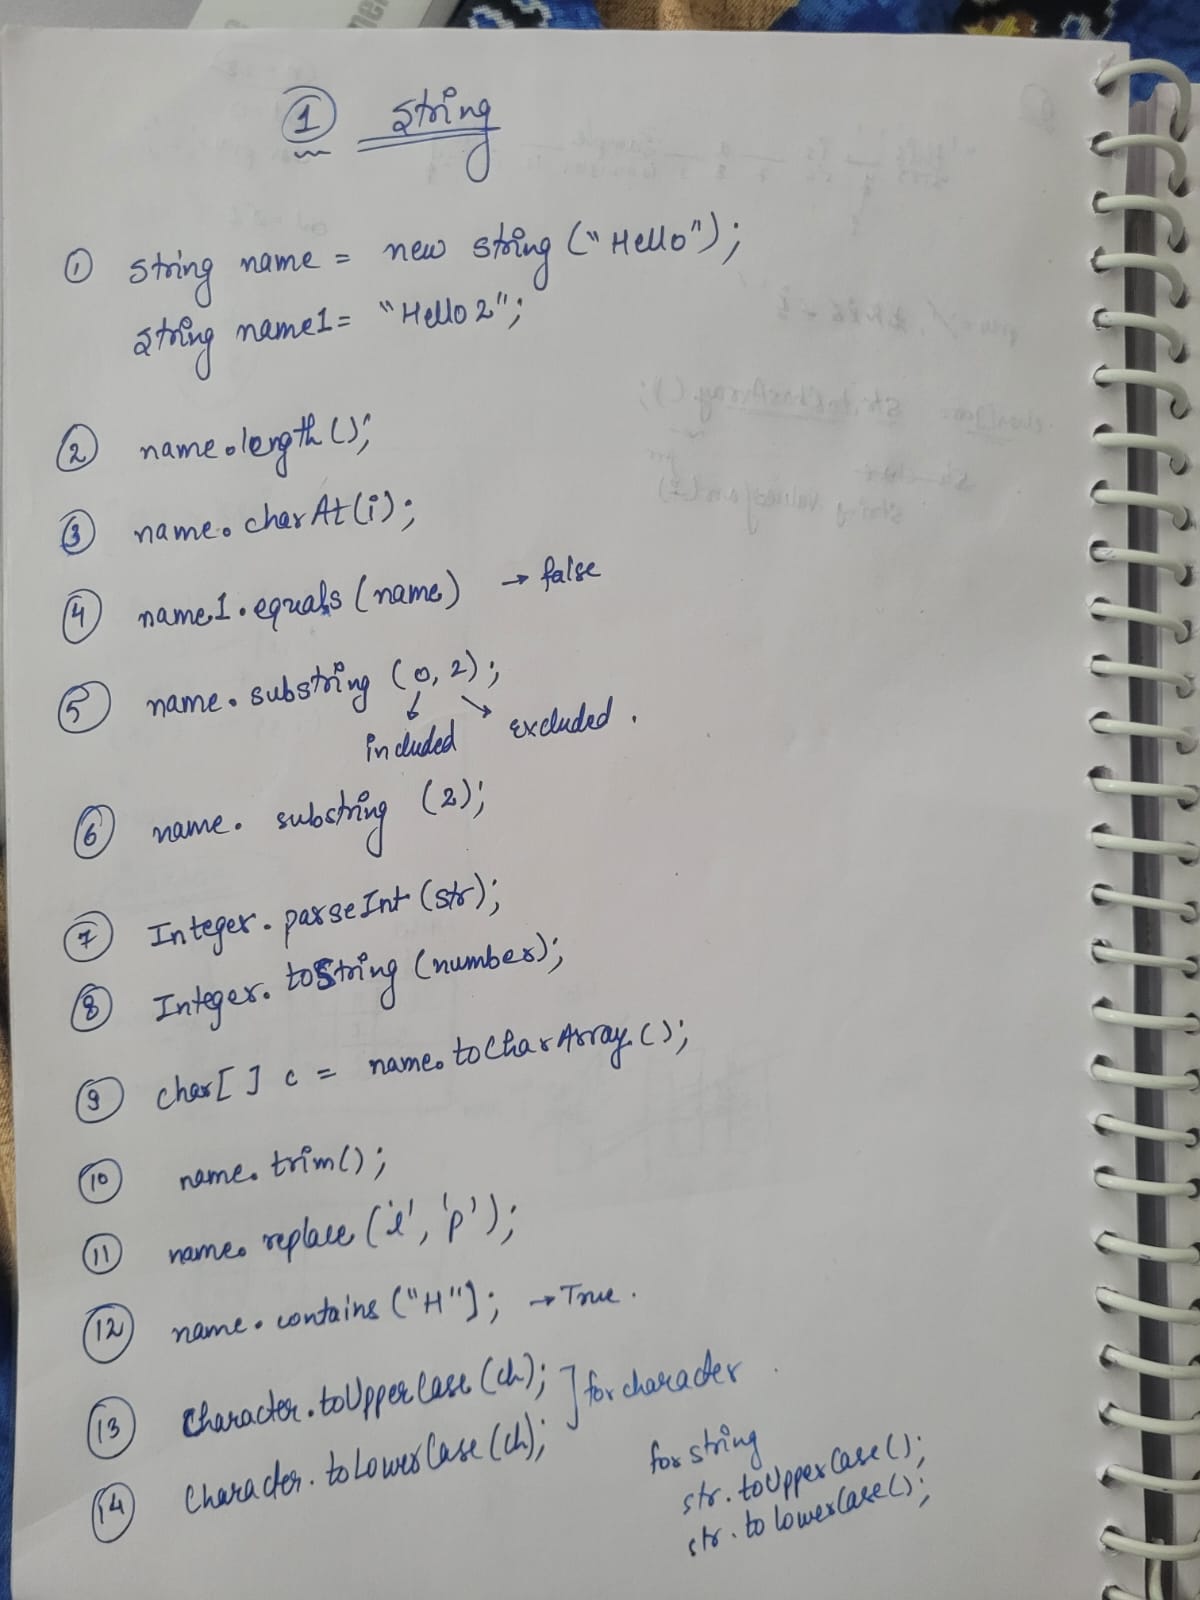 ① String
① String name = new string ("Hello");
String name1 = "Hello2";
② name.length();
③ name.charAt(i);
④ name1.equals(name) → false
⑤ name.substring (0, 2);
included excluded.
⑥ name. substring (2);
⑦ Integer.parseInt(str);
⑧ Integer.toString (number);
⑨ char[ ] c = name.toCharArray.();
⑩ name.trim();
⑪ name.replace ('l', 'p');
⑫ name.contains ("H"]; → True.
⑬ Character.toUpperCase(ch); ] for character
⑭ Character.toLowerCase(ch);
for string
str.toUpperCase();
str.to lowerCase();